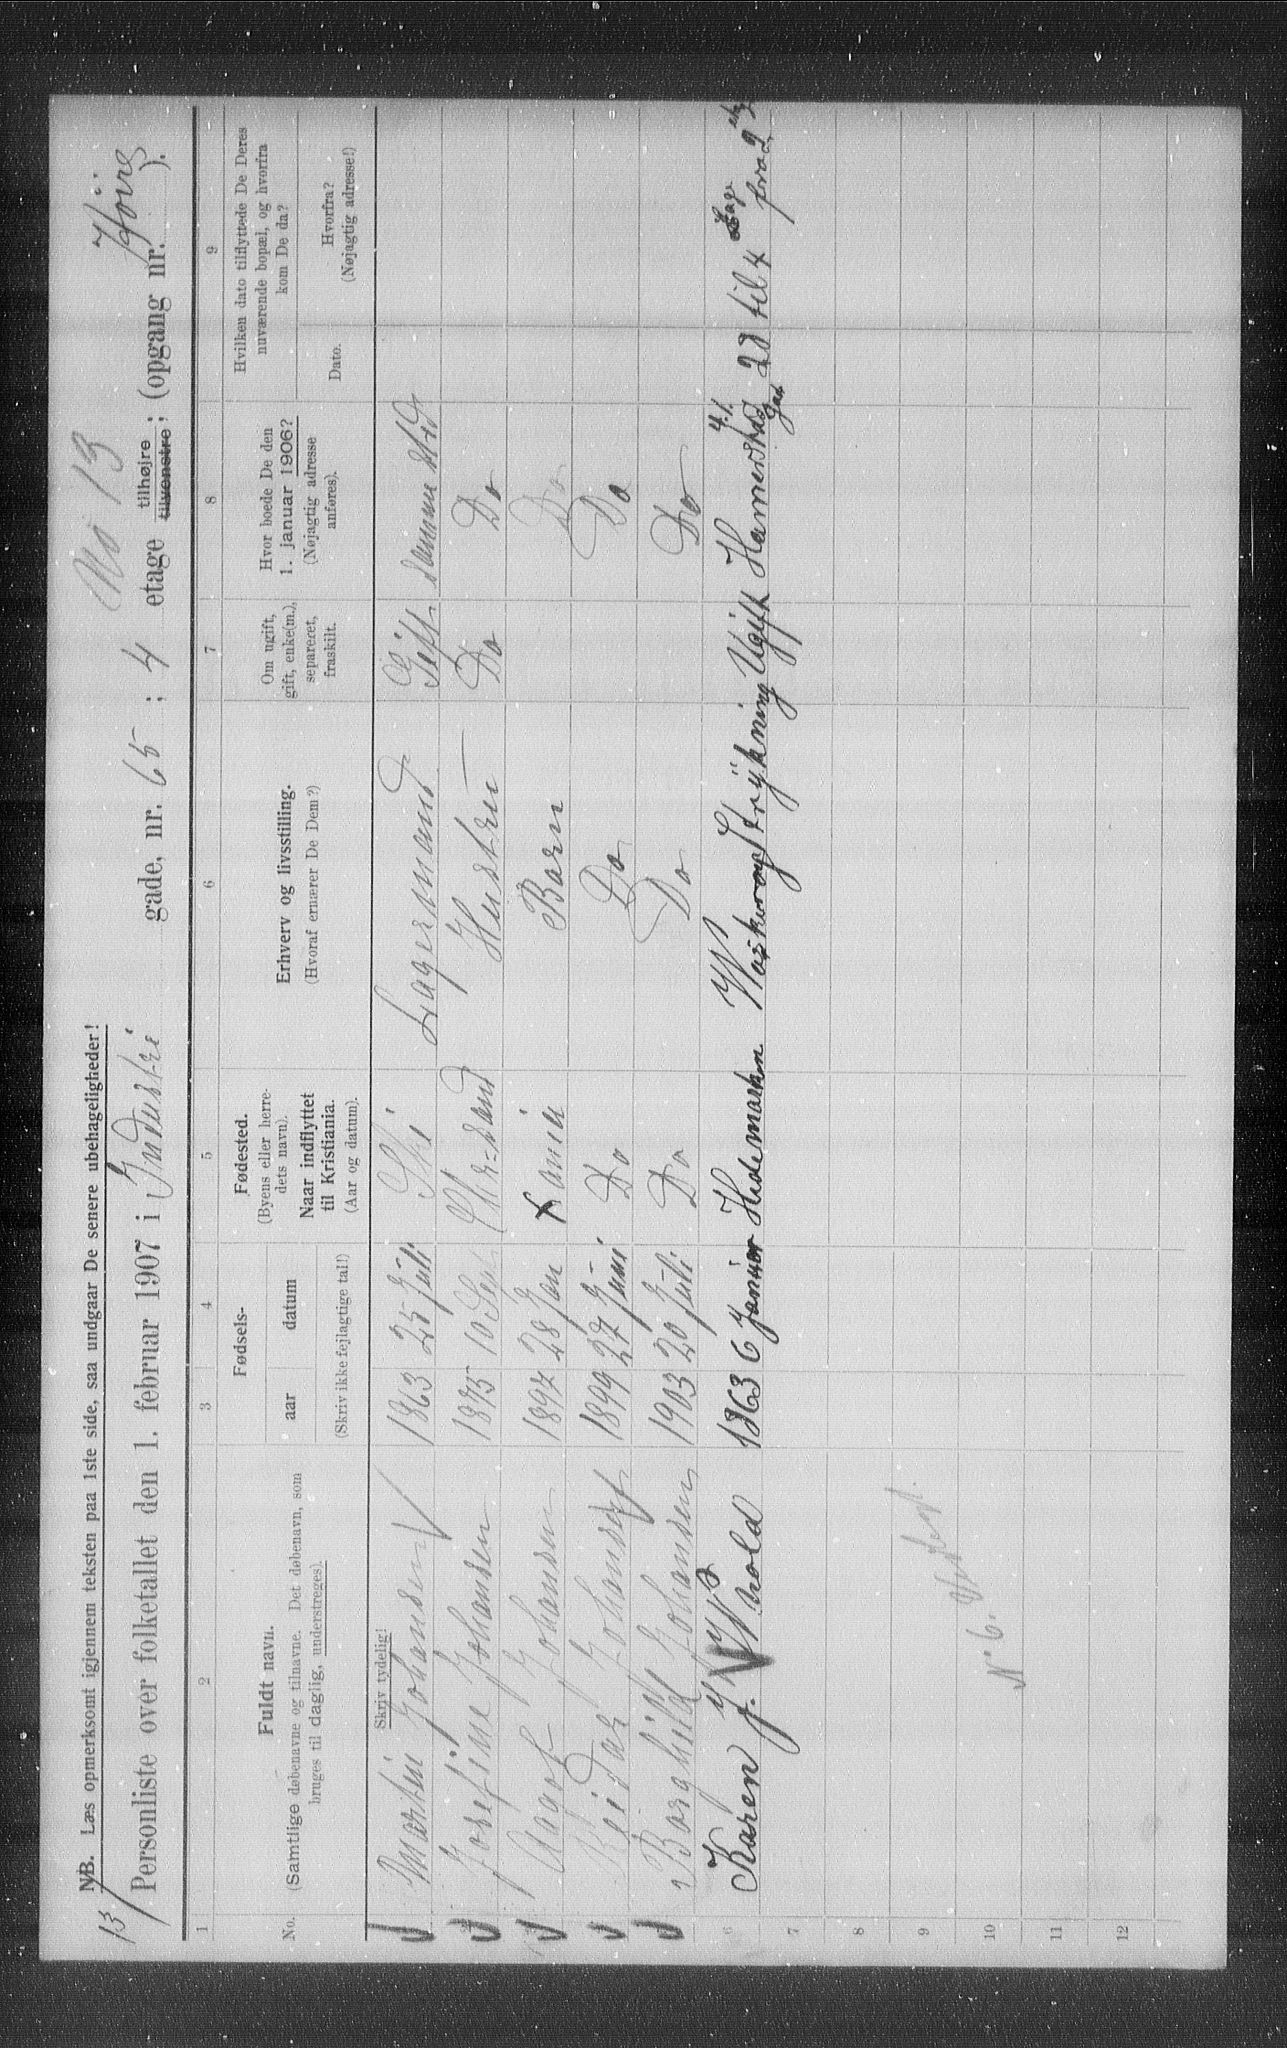 13/
NB. Læs opmerksomt igjennem teksten paa 1ste side, saa undgaar De senere ubehageligheder!
No 13
Personliste over folketallet den 1. februar 1907 i Industri gade, nr. 65 ; 4 etage tilhøjre tilvenstre ; (opgang nr. ).
1 2 3 4 5 6 7 8 9
No.
Fuldt navn.
(Samtlige døbenavne og tilnavne. Det døbenavn, som
bruges til daglig, understreges).
Fødsels-
aar datum
(Skriv ikke fejlagtige tal!)
Fødested.
(Byens eller herre-
dets navn).
Naar indflyttet
til Kristiania.
(Aar og datum).
Erhverv og livsstilling.
(Hvoraf ernærer De Dem?)
Om ugift,
gift, enke(m.),
separeret,
fraskilt.
Hvor boede De den
1. januar 1906?
(Nøjagtig adresse
anføres).
Hvilken dato tilflyttede De Deres
nuværende bopæl, og hvorfra
kom De da?
Dato.
Hvorfra?
(Nøjagtig adresse!)
Skriv tydelig!
Martin Johansen 1863 25 Juli Ski Lagermand Gift samme sted
Josefine Johansen 1875 10 Sep Chr-sand Hustru Do Do
Aagot Johansen 1897 28 Jan X ania Barn Do
Reidar Johansen 1899 27 Juni Do Do Do
Borghild Johansen 1903 20 Juli Do Do Do
6 Karen J. Wold 1863 6 Januar Hedemarken Waskerog Strykning Ugift Hamerstad Gad 41. 2d til 4 Etage fra 2
7
8
9
10 N° 6.
11
12